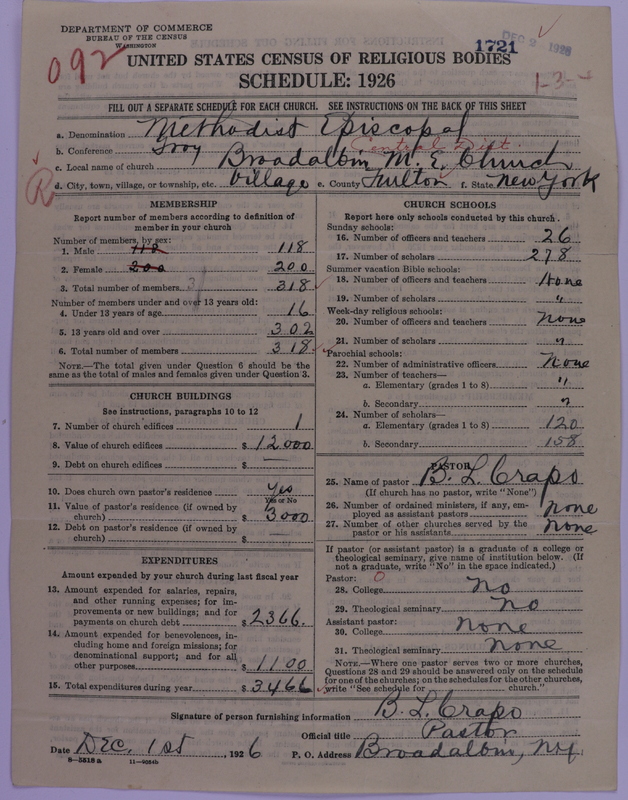 DEPARTMENT OF COMMERCE
BUREAU OF THE CENSUS
WASHINGTON
092
1721
DEC 2 1926
UNITED STATES CENSUS OF RELIGIOUS BODIES
SCHEDULE: 1926
1-3-
FILL OUT A SEPARATE SCHEDULE FOR EACH CHURCH. SEE INSTRUCTIONS ON THE BACK OF THIS SHEET
a. Denomination Methodist Episcopal
b. Conference Troy Central Dist.
c. Local name of church Broadalbin M. E. Church
R
d. City, town, village, or township, etc. Village e. County Fulton f. State New York
MEMBERSHIP
Report number of members according to definition of
member in your church
Number of members, by sex:
1. Male 118 118
2. Female 200 200
3. Total number of members 318
Number of members under and over 13 years old:
4. Under 13 years of age 16
5. 13 years old and over 302
6. Total number of members 318
NOTE.—The total given under Question 6 should be
same as the total of males and females given under Question 3.
CHURCH BUILDINGS
See instructions, paragraphs 10 to 12
7. Number of church edifices 1
8. Value of church edifices $ 12000
9. Debt on church edifices $ —
10. Does church own pastor's residence Yes
Yes or No
11. Value of pastor's residence (if owned by
church) $ 3000
12. Debt on pastor's residence (if owned by
church) $ —
EXPENDITURES
Amount expended by your church during last fiscal year
13. Amount expended for salaries, repairs,
and other running expenses; for im-
provements or new buildings; and for
payments on church debt $ 2366.
14. Amount expended for benevolences, in-
cluding home and foreign missions; for
denominational support; and for all
other purposes $ 1100
15. Total expenditures during year $ 3466
CHURCH SCHOOLS
Report here only schools conducted by this church.
Sunday schools:
16. Number of officers and teachers 26
17. Number of scholars 278
Summer vacation Bible schools:
18. Number of officers and teachers None
19. Number of scholars "
Week-day religious schools:
20. Number of officers and teachers None
21. Number of scholars "
Parochial schools:
22. Number of administrative officers None
23. Number of teachers—
a. Elementary (grades 1 to 8) "
b. Secondary "
24. Number of scholars—
a. Elementary (grades 1 to 8) 120
b. Secondary 158
PASTOR
25. Name of pastor B. L. Crapo
(If church has no pastor, write "None")
26. Number of ordained ministers, if any, em-
ployed as assistant pastors None
27. Number of other churches served by the
pastor or his assistants None
If pastor (or assistant pastor) is a graduate of a college or
theological seminary, give name of institution below. (If
not a graduate, write "No" in the space indicated.)
Pastor: 0
28. College No
29. Theological seminary No
Assistant pastor:
30. College None
31. Theological seminary None
NOTE.—Where one pastor serves two or more churches,
Questions 28 and 29 should be answered only on the schedule
for one of the churches; on the schedules for the other churches,
write "See schedule for church."
Signature of person furnishing information B. L. Crapo
Official title Pastor
Date Dec. 1st, 1926 P. O. Address Broadalbin, N.Y.
8—5518 a 11—9054b